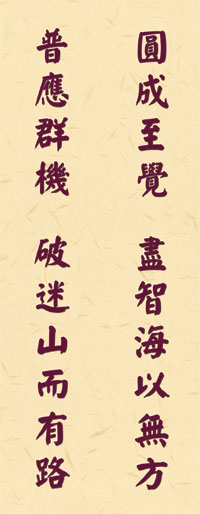 圓成至覺 盡智海以無方
普應群機 破迷山而有路